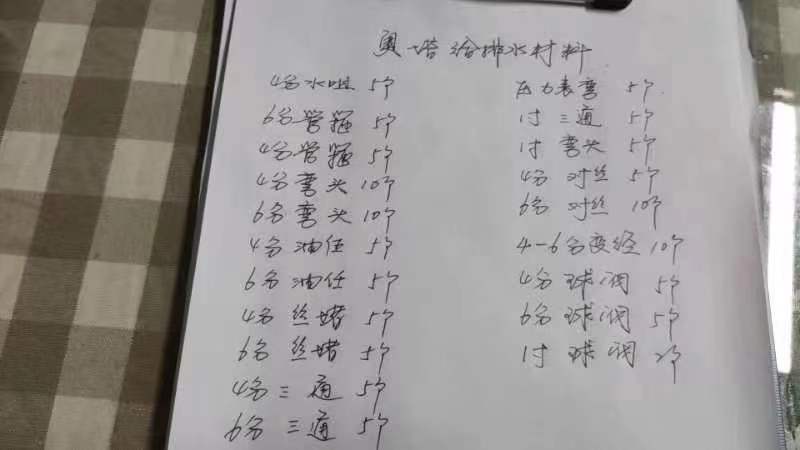 奥塔给排水材料
4分水咀 5个
6分管箍 5个
4分管箍 5个
4分弯头 10个
6分弯头 10个
4分油任 5个
6分油任 5个
4分丝堵 5个
6分丝堵 5个
4分三通 5个
6分三通 5个
压力表弯 5个
1寸三通 5个
1寸弯头 5个
4分对丝 5个
6分对丝 10个
4-6分变经 10个
4分球阀 5个
6分球阀 5个
1寸球阀 2个